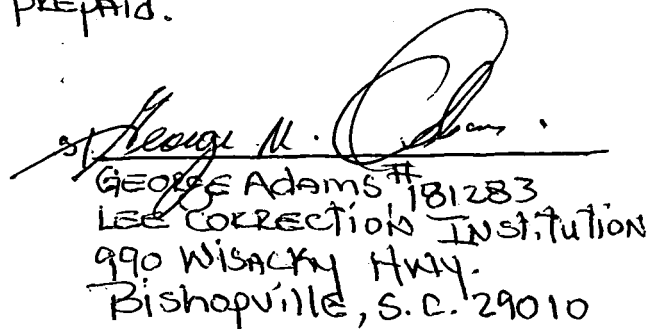 prepaid.
s/ George M. Adams.
GEORGE Adams #181283
LEE CORRECTION INSTITUTION
990 WISACKY HWY.
Bishopville, S.C. 29010